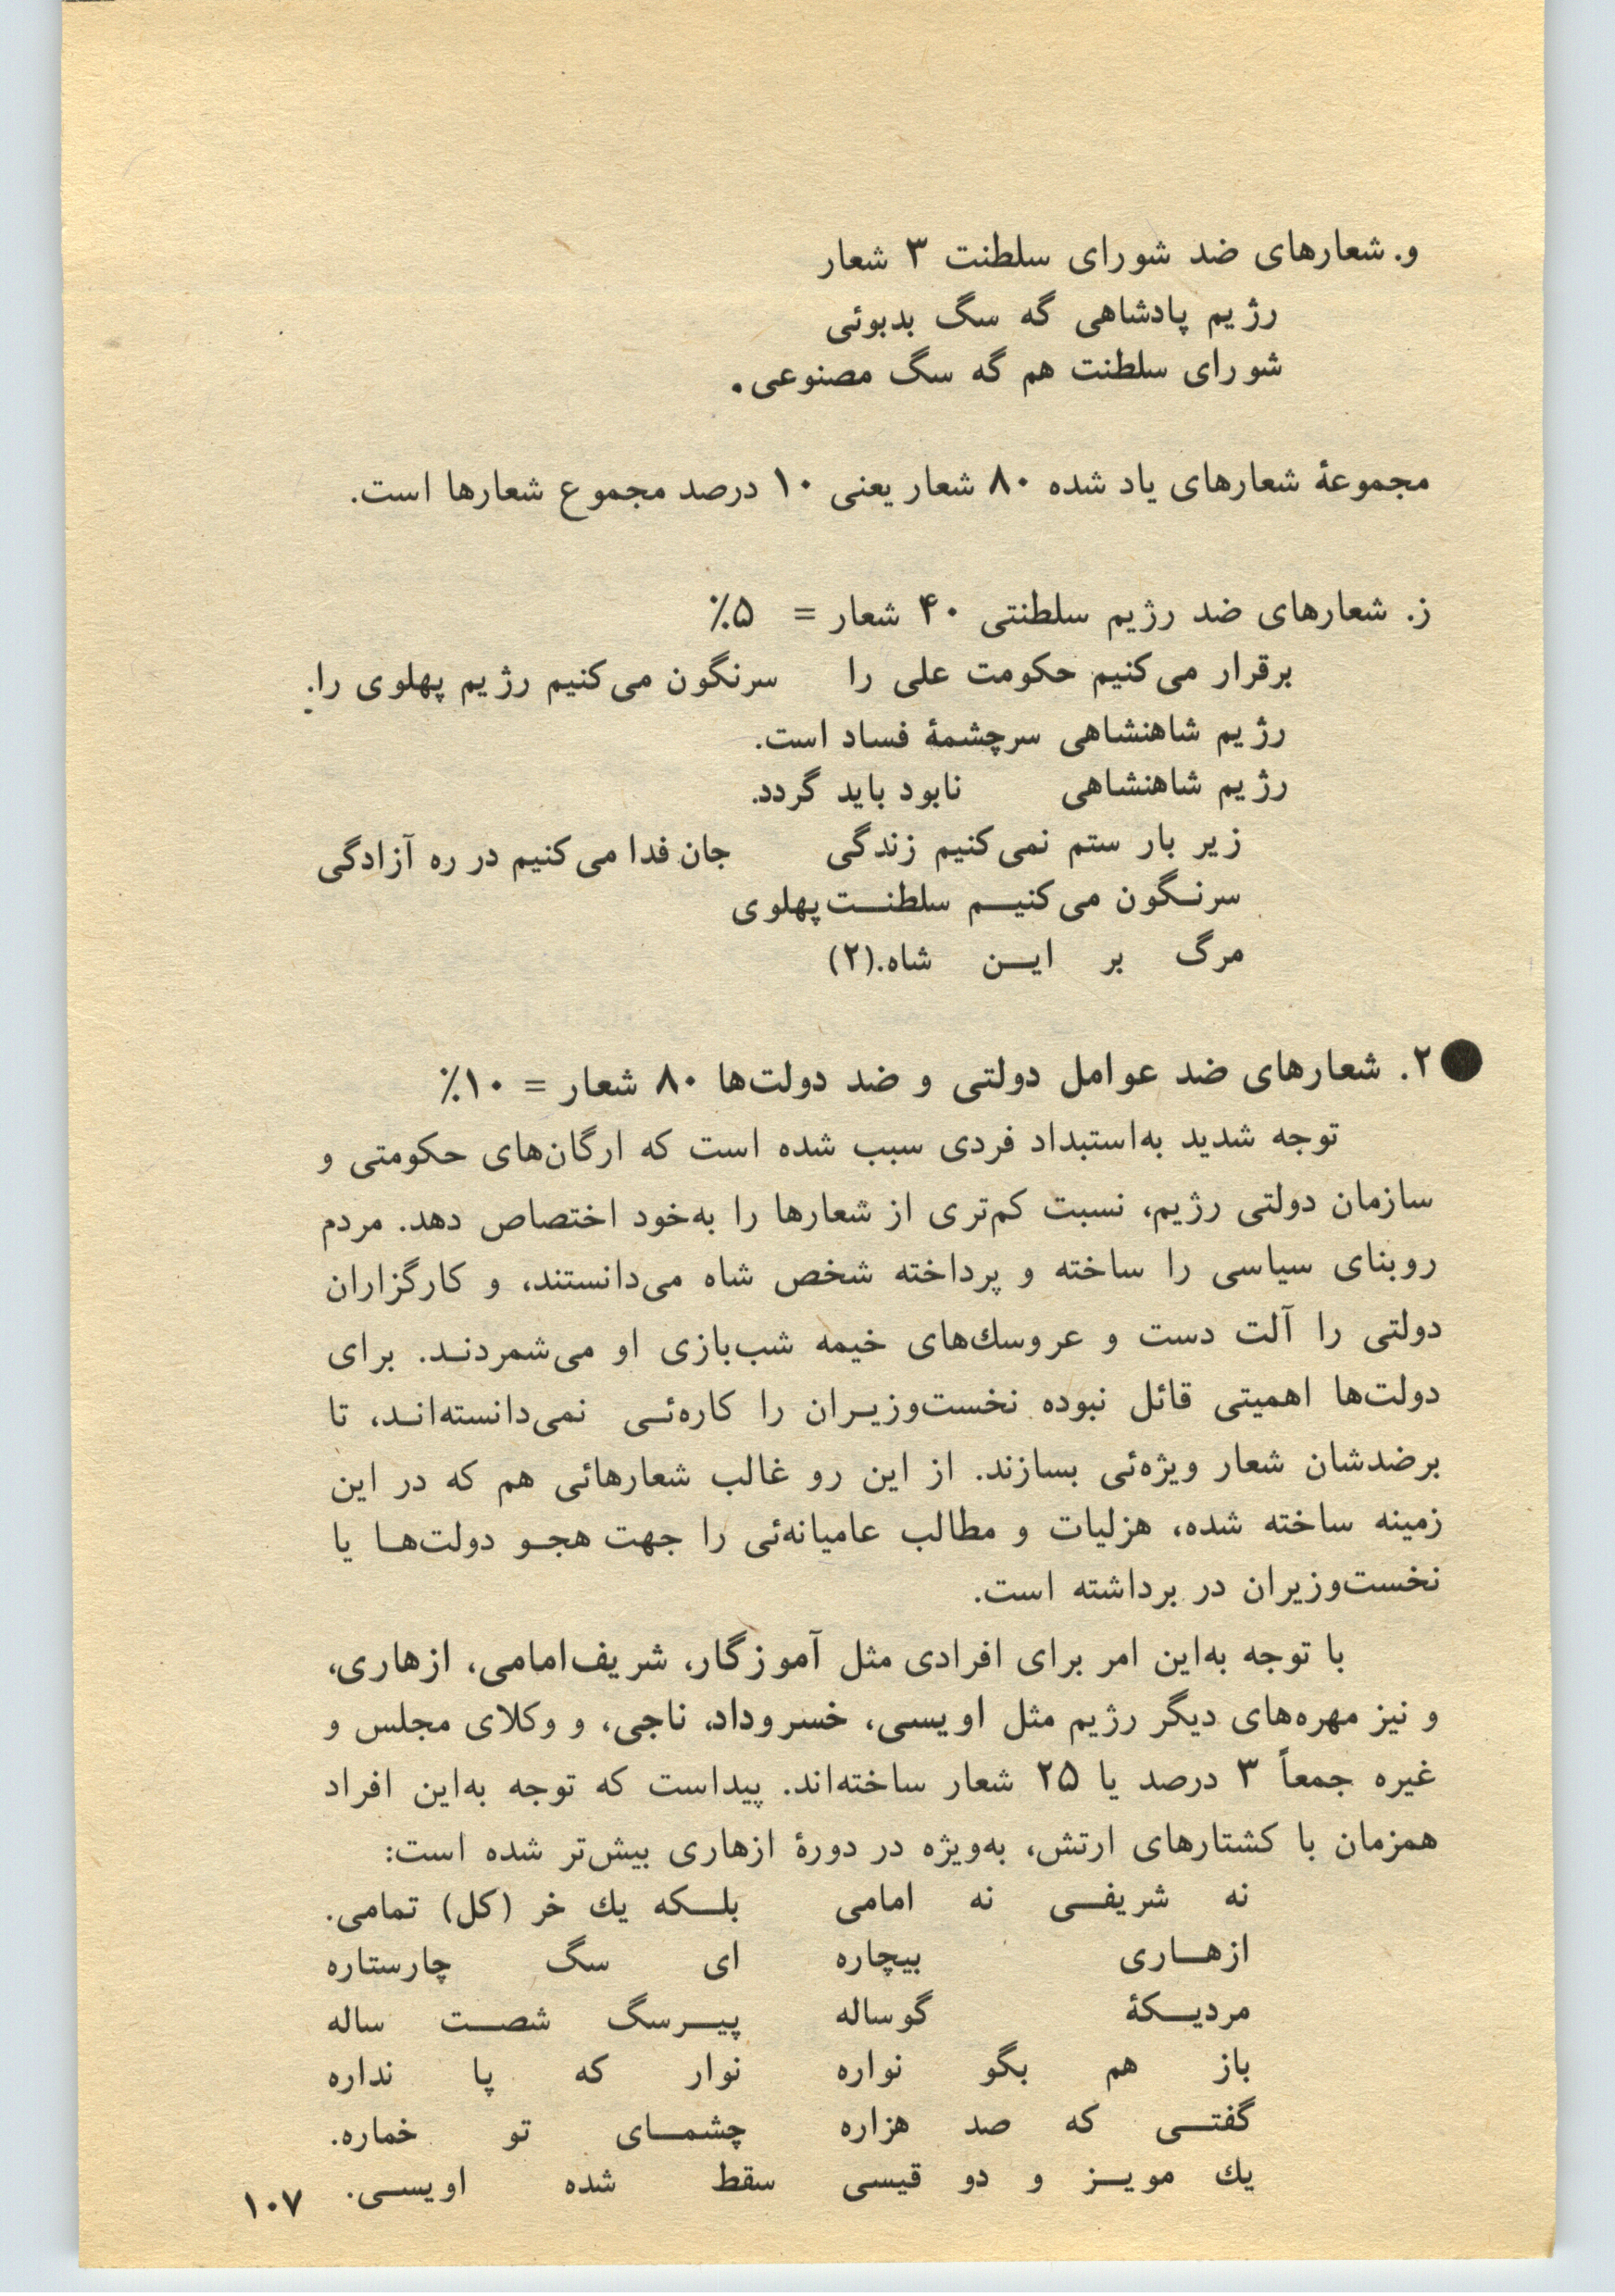 و. شعارهای ضد شورای سلطنت ۳ شعار
رژیم پادشاهی گه سگ بدبوئی
شورای سلطنت هم گه سگ مصنوعی.
مجموعهٔ شعارهای یاد شده ۸۰ شعار یعنی ۱۰ درصد مجموع شعارها است.
ز. شعارهای ضد رژیم سلطنتی ۴۰ شعار = ۵٪
برقرار می‌کنیم حکومت علی را سرنگون می‌کنیم رژیم پهلوی را.
رژیم شاهنشاهی سرچشمهٔ فساد است.
رژیم شاهنشاهی نابود باید گردد.
زیر بار ستم نمی‌کنیم زندگی جان فدا می‌کنیم در ره آزادگی
سرنگون می‌کنیم سلطنت پهلوی
مرگ بر این شاه.(۲)
● ۲. شعارهای ضد عوامل دولتی و ضد دولت‌ها ۸۰ شعار = ۱۰٪
توجه شدید به‌استبداد فردی سبب شده است که ارگان‌های حکومتی و
سازمان دولتی رژیم، نسبت کم‌تری از شعارها را به‌خود اختصاص دهد. مردم
روبنای سیاسی را ساخته و پرداخته شخص شاه می‌دانستند، و کارگزاران
دولتی را آلت دست و عروسك‌های خیمه شب‌بازی او می‌شمردند. برای
دولت‌ها اهمیتی قائل نبوده نخست‌وزیران را کاره‌ئی نمی‌دانسته‌اند، تا
برضدشان شعار ویژه‌ئی بسازند. از این رو غالب شعارهائی هم که در این
زمینه ساخته شده، هزلیات و مطالب عامیانه‌ئی را جهت هجو دولت‌ها یا
نخست‌وزیران در برداشته است.
با توجه به‌این امر برای افرادی مثل آموزگار، شریف‌امامی، ازهاری،
و نیز مهره‌های دیگر رژیم مثل اویسی، خسروداد، ناجی، و وکلای مجلس و
غیره جمعاً ۳ درصد یا ۲۵ شعار ساخته‌اند. پیداست که توجه به‌این افراد
همزمان با کشتارهای ارتش، به‌ویژه در دورهٔ ازهاری بیش‌تر شده است:
نه شریفی نه امامی بلکه یك خر (کل) تمامی.
ازهاری بیچاره ای سگ چارستاره
مردیکهٔ گوساله پیرسگ شصت ساله
باز هم بگو نواره نوار که پا نداره
گفتی که صد هزاره چشمای تو خماره.
یك مویز و دو قیسی سقط شده اویسی.
۱۰۷